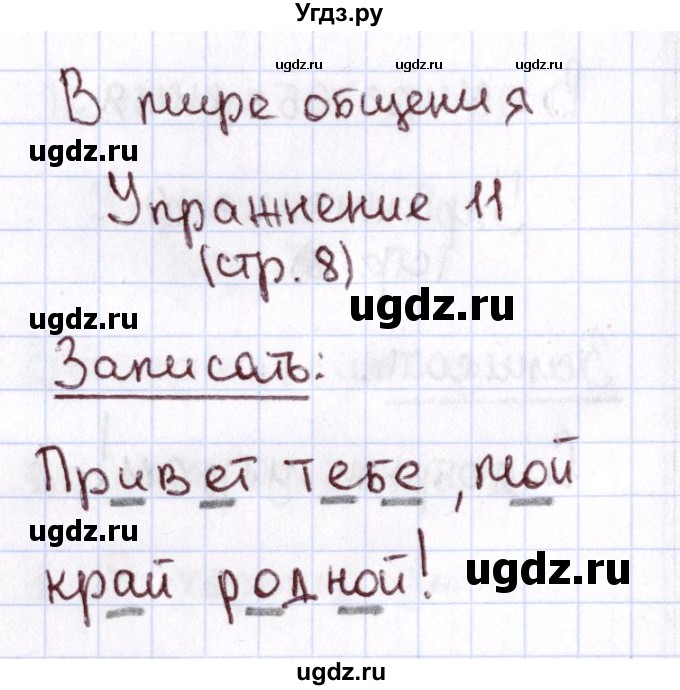 Угдз.ру
ugdz.ru ugdz.ru ugdz.ru
В мире общения
ugdz.ru
Упражнение 11
(стр. 8)
ugdz.ru
ugdz.ru
Записать:
Привет тебе, мой
ugdz.ru
край родной!
ugdz.ru
ugdz.ru